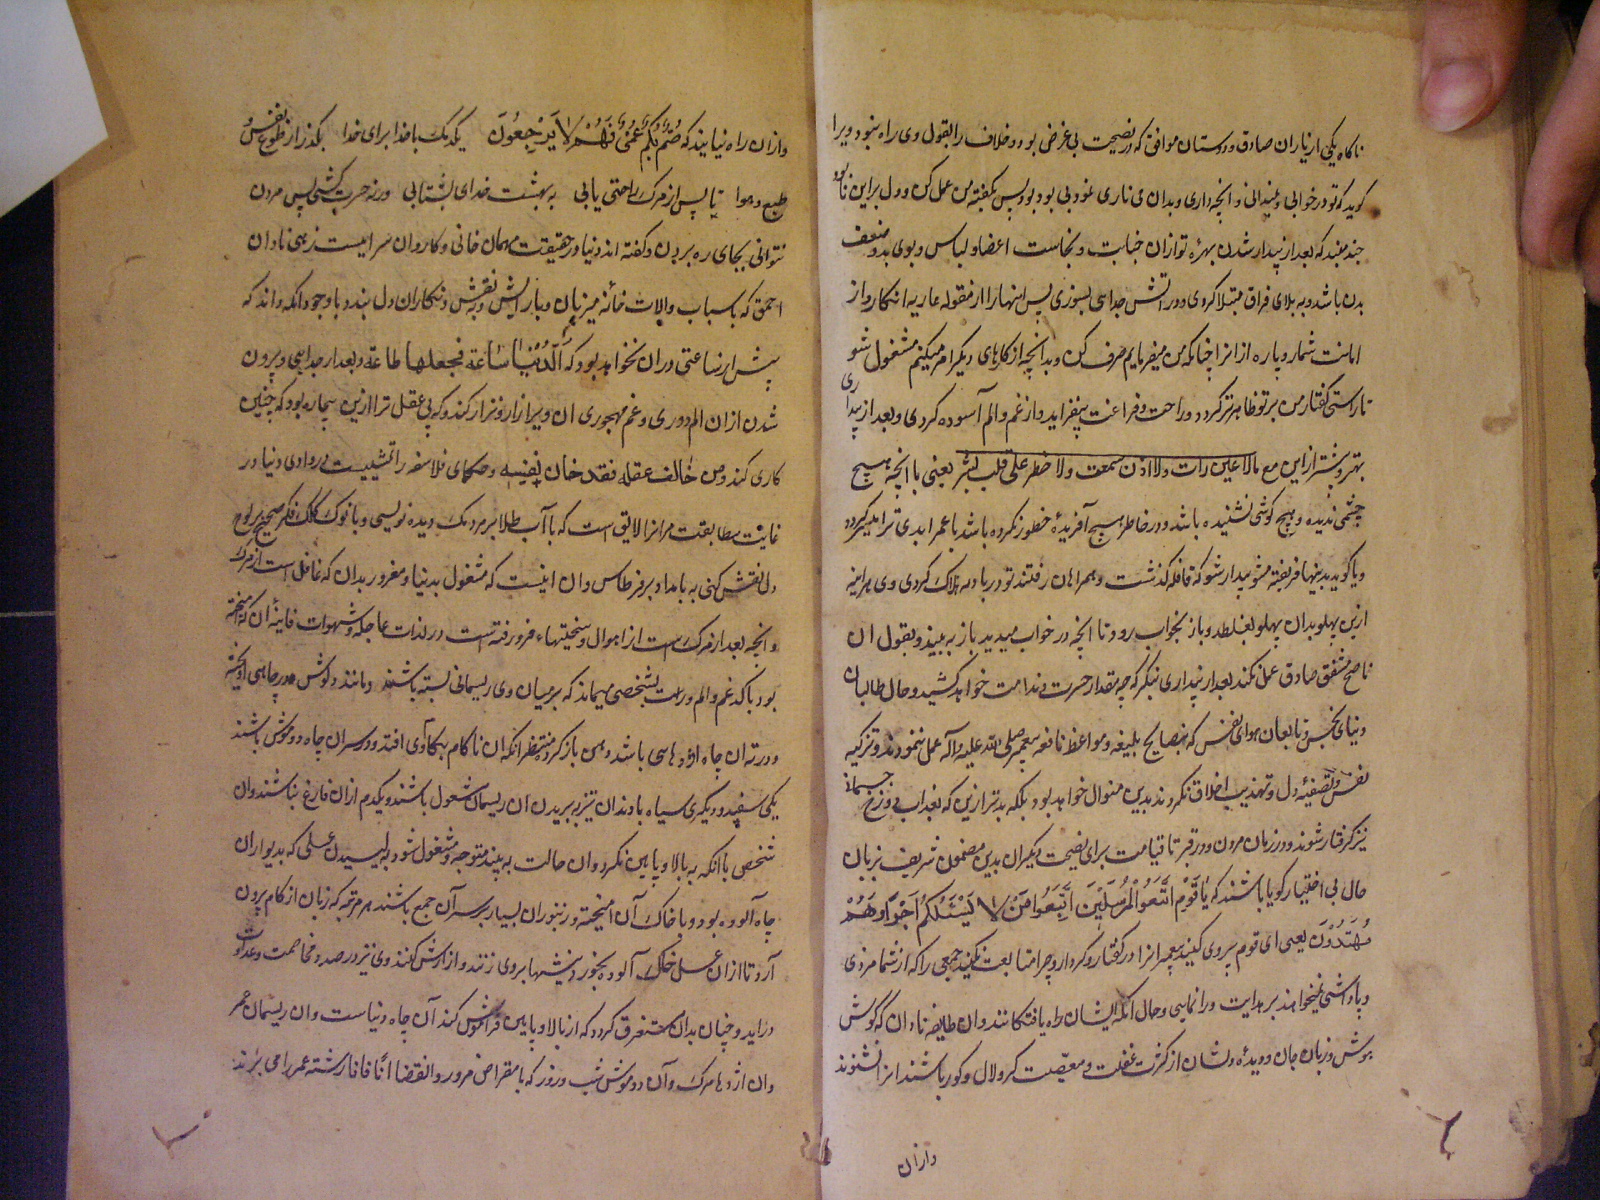 ناکاه یکی از یاران صادق و دوستان موافق که در نصیحت بی غرض بود و خلاف را بقول وی راه نبود ویرا
کوید که تو در خوابی و نمیدانی و آنچه داری و بدان می نازی نمودی بود بی بود پس بکفته من عمل کن و دل براین
چند مبند که بعد از بیدار شدن بهره تو ازان جنابت و نجاست اعضا و لباس و بوی بد و ضعف
بدن باشد و به بلای فراق مبتلا کردی و در آتش جدایی بسوزی پس اینها را از مقوله عاریه انکار و از
امانت شمار و پاره از انرا چنانکه من میفرمایم صرف کن و بدانچه از کارهای دیکر امر میکنم مشغول شو
تا راستی کفتار من بر تو ظاهرتر کردد و راحت و فراغت بیفزاید و از غم و الم آسوده کردی و بعد از بیداری
بهتر و بیشتر ازین مع مالا عین رات ولا اذن سمعت ولا خطر علی قلب بشر یعنی با آنچه هیچ
چشمی ندیده و هیچ کوشی نشنیده باشد و در خاطر هیچ آفریدهٔ خطور نکرده باشد با عمر ابدی ترا بدید کردد
و یا کوید بدینها فریفته مشو بیدار شو که قافله کذشت و همراهان رفتند تو در بادیه هلاک کردی وی هر اینه
ازین پهلو بدان پهلو بغلطد و باز بخواب رود تا آنچه در خواب میدید باز به بیند و بقول ان
ناصح مشفق صادق عمل نکند بعد از بیداری بنکر که چه مقدار حسرت و ندامت خواهد کشید و حال طالبان
دنیای نجس و تابعان هوای نفس که بنصایح بلیغه و مواعظ نافعه پیغمبر صلی الله علیه و آله عمل ننمودند و تزکیه
نفس و تصفیهٔ دل و تهذیب اخلاق نکردند بدین منوال خواهد بود بلکه بدتر ازین که بعذاب دوزخ جسمانی
نیز کرفتار شوند و در زمان مردن و در قبر تا قیامت برای نصیحت دیکران بدین مضمون شریف بزبان
حال بی اختیار کویا باشند که یا قَوْمِ اتَّبَعُوا الْمُرْسَلِیْنَ اِتَّبِعُوا مَنْ لا یَسْئَلُکُمْ اَجْرًا وَهُمْ
مُهْتَدُوْنَ یعنی ای قوم پیروی کنید پیغمبرانرا در کفتار و کردار و چرا متابعت نکنید جمعی را که از شما مزدی
و پاداشی نمیخواهند بر هدایت و رانمایی و حال آنکه ایشان راه یافتکانند وان طایفه نادان که کوش
هوش و زبان جان و دیدهٔ دلشان از کثرت غفلت و معصیّت کر و لال و کور باشند انرا نشنوند
وازان
وازان راه نیابند که صُمٌّ بُکْمٌ عُمْیٌ فَهُمْ لا یَرْجِعُوْنَ یکدمک با خدا برای خدا بکذر از طوع نفس و
طبع و هوا تا پس از مرک راحتی یابی به بهشت خدای بشتابی ورنه حسرت کشی پس مردن
نتوانی بجای ره بردن و کفته اند دنیا در حقیقت مهمان خانی و کاروان سراییست زهی نادان
احمق که باسباب والات خانه میزبان و بارایش و نقش و نکاران دل بندد با وجود انکه داند که
بیش از ساعتی دران نخواهد بود که الَدُنْیا سَاعَة فجعلها طاعَة و بعد از جدایی و بیرون
شدن ازان الم دوری و غم مهجوری ان ویرا زار و نزار کند و که بی عقل تر ازین بیچاره بود که چنین
کاری کند ومن خالف عقله فقد خان نفسه و حکمای فلاسفه را تشبیهیست در وادی دنیا در
غایت مطابقت مر انرا لایق است که با آب طلا بر مردمک دیده نویسی و با نوک کلک فکر صحیح بر لوح
دل نقش کنی نه با مداد بر قرطاس وان اینست که مشغول بدنیا و مغرور بدان که غافل است از مرک
و انچه بعد از مرک است از اهوال و سختیها و فرو رفته است در لذات عاجله و شهوات فانیه ان که امیخته
بود باکدار غم و الم دراست بشخصی میماند که بر میان وی ریسمانی بسته باشند و در چاهی آویخته
و در ته ان چاه اژدهایی باشد دهن باز کرده منتظر انکه ان ناکام بکام وی افتد و در سر ان چاه دو موش باشند
یکی سفید و دیکری سیاه با دندان تیز به بریدن ان ریسمان مشغول باشند و یکدم ازان فارغ نباشند وان
شخص با انکه به بالا و پایین نکرد و ان حالت به بیند متوجه و مشغول شود به لیسیدن عسلی که بدیواران
چاه آلوده بود و با خاک آن آمیخته و زنبوران بسیار بر سر آن جمع باشند هر مرتبه که زبان از کام بیرون
آرد تا ازان عسل خاک آلوده بخورد نیشها بروی زنند و ازارش کنند وی نیز در صدد مخاصمت و عداوت
درآید و چنان بدان مستغرق کردد که از بالا و پایین فراموش کند آن چاه دنیاست وان ریسمان عمر
وان اژدها مرک و آن دو موش شب و روز که با مقراض مرور و انقضا اناً فاناً رشته عمر را می برند